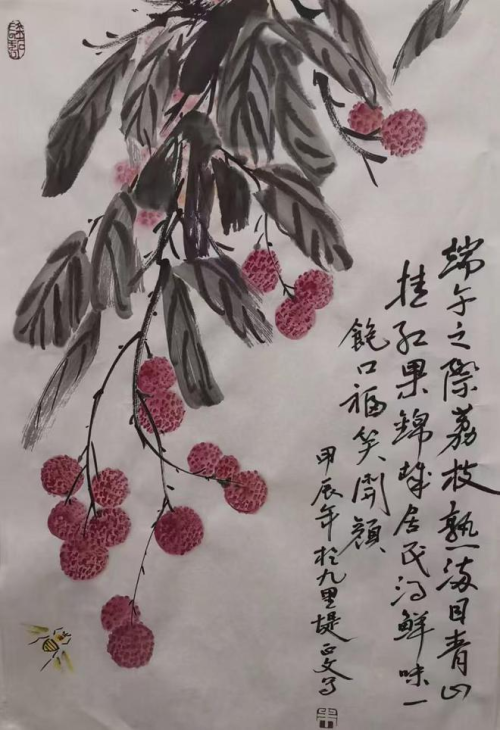 端午之際荔枝熟滿目青山
挂红果錦球居民得鮮味一
飽口福笑開顏
甲辰年於九里堤正文写